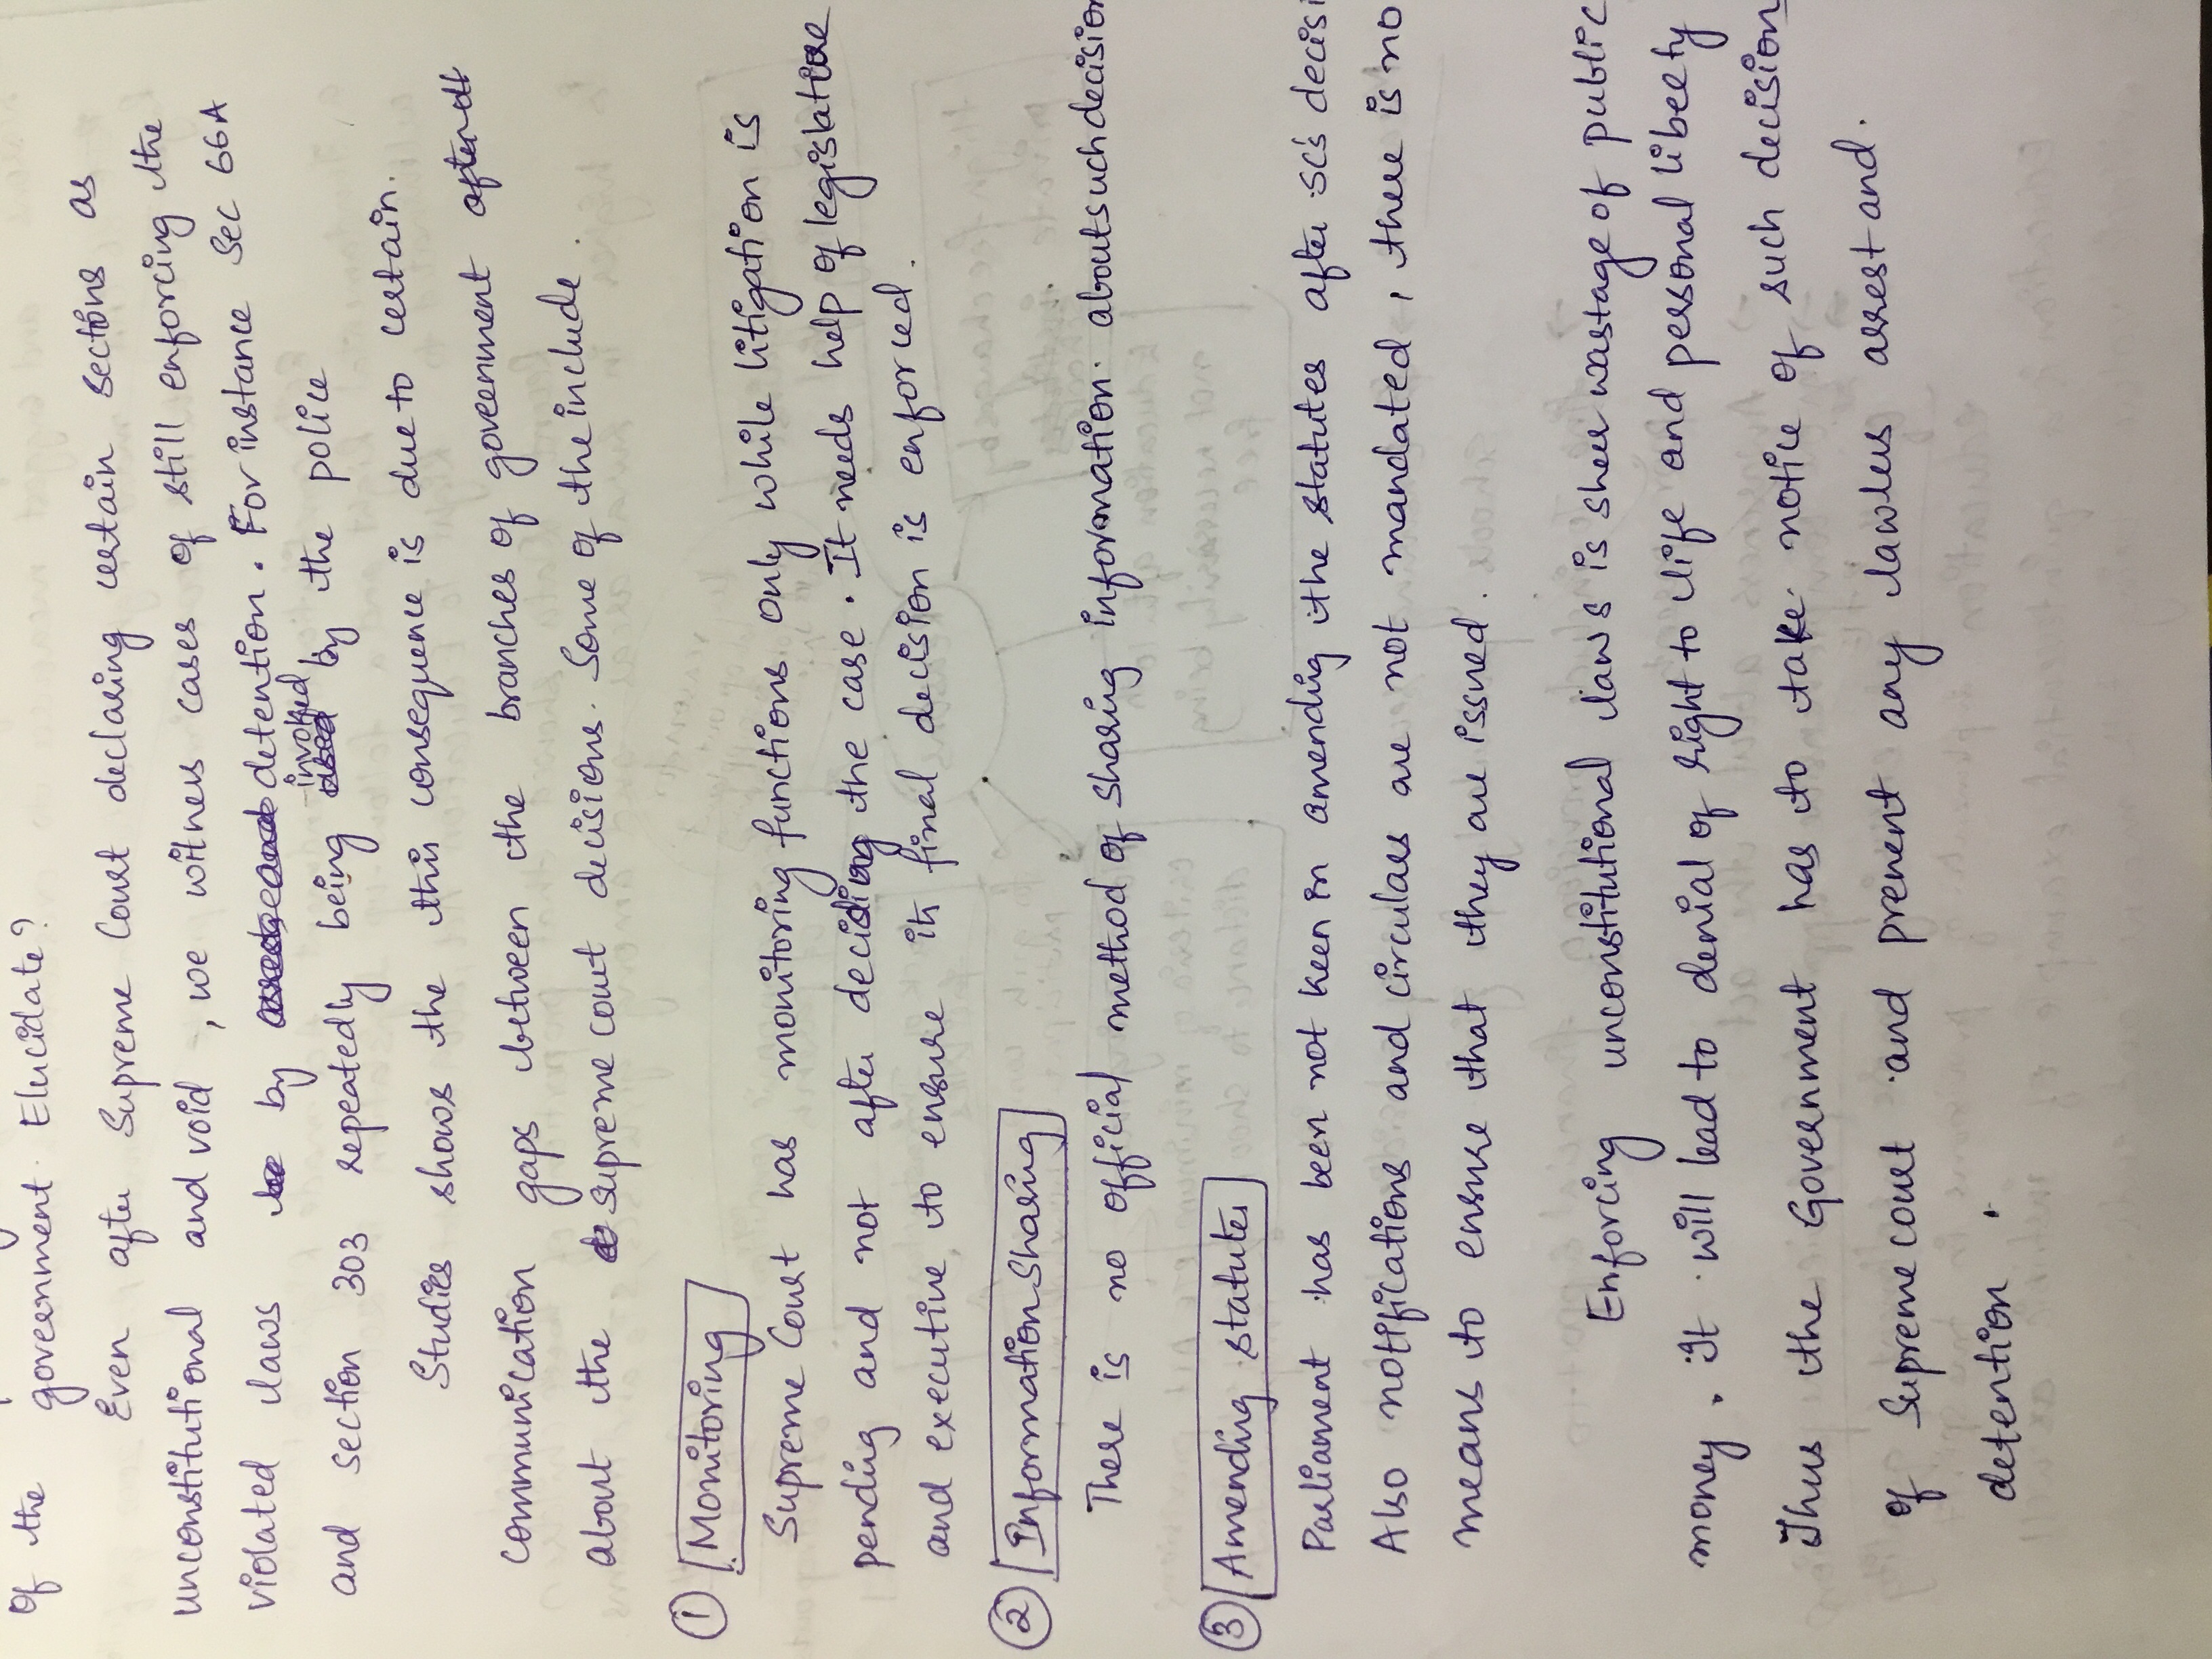 of the government. Elucidate?
Even after Supreme Court declaring certain sections as
unconstitutional and void, we witness cases of still enforcing the
violated laws by detention. For instance Sec 66A
and section 303 repeatedly being invoked by the police
Studies shows the this consequence is due to certain.
communication gaps between the branches of government after
about the supreme court decisions. Some of the include.
① Monitoring
Supreme Court has monitoring functions only while litigation is
pending and not after deciding the case. It needs help of legislature
and executive to ensure its final decision is enforced.
② Information Sharing
There is no official method of sharing information. about such decision
③ Amending statutes
Parliament has been not keen in amending the statutes after SC's decisi
Also notifications and circulars are not mandated, there is no
means to ensure that they are issued.
Enforcing unconstitutional laws is sheer wastage of public
money. It will lead to denial of right to life and personal liberty
Thus the Government has to take notice of such decision
of Supreme court and prevent any lawless arrest and.
detention.